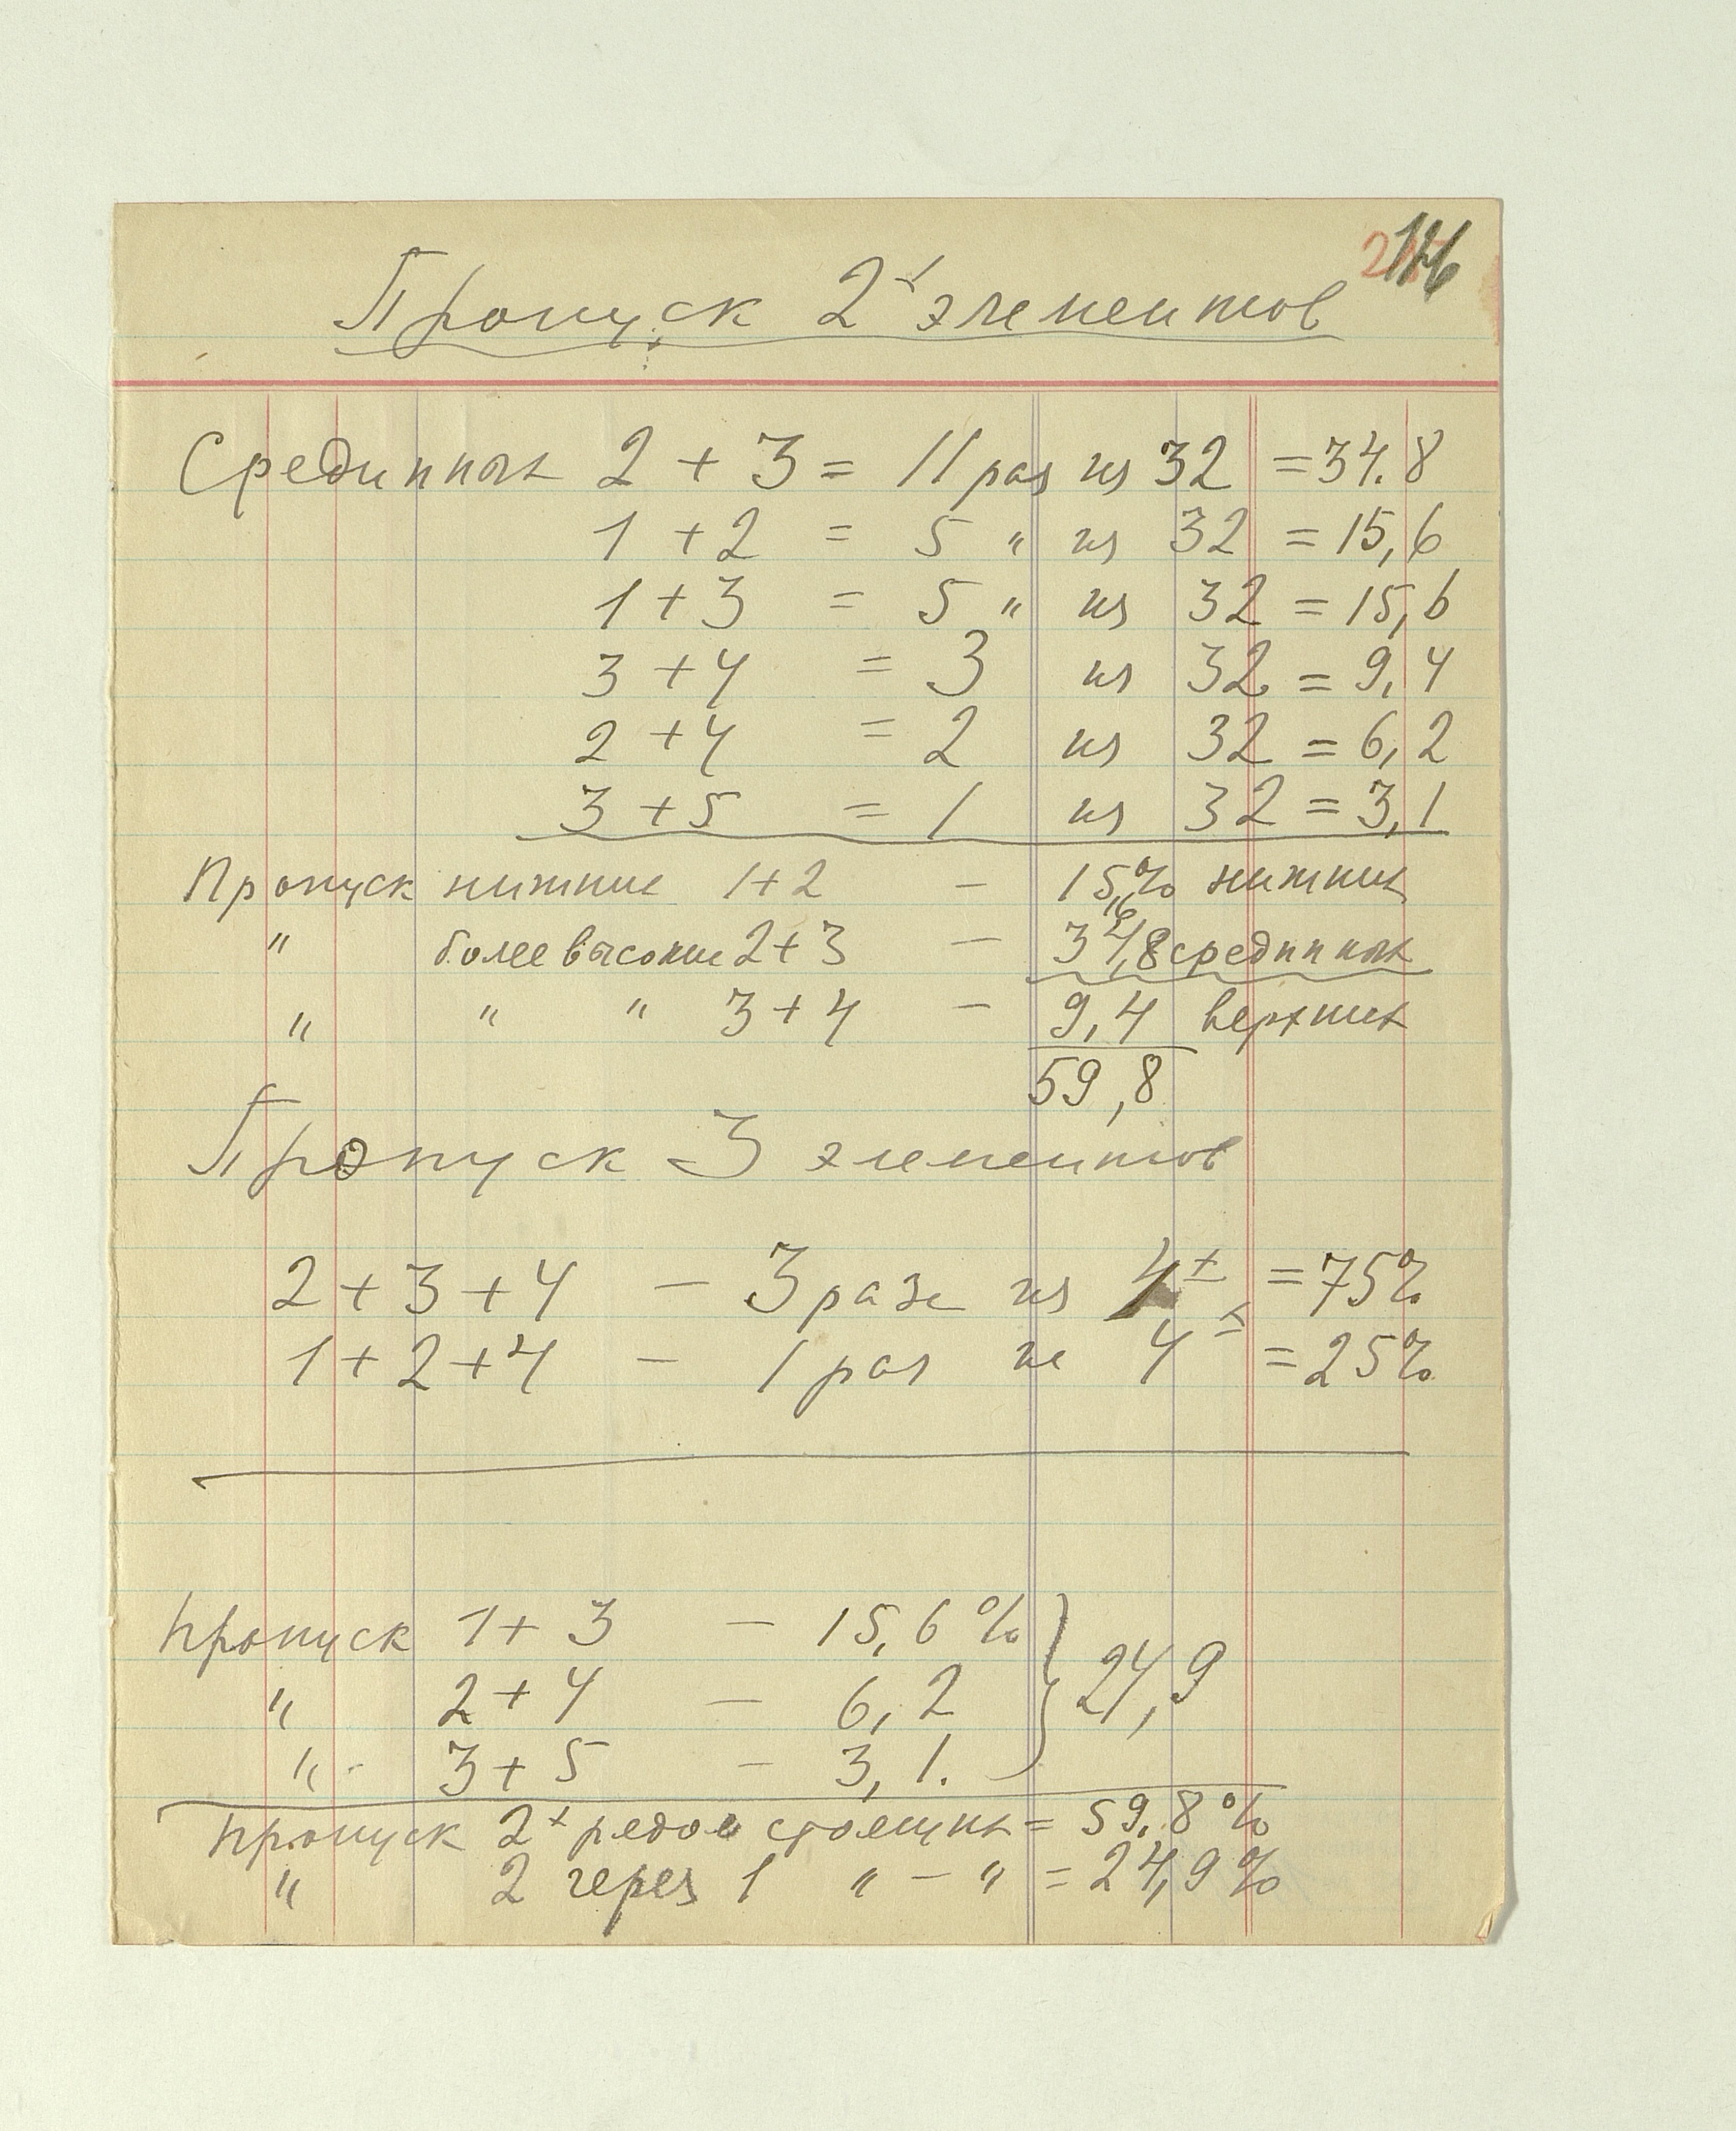 Пропуск 2х элементов
Срединных 2 + 3 = 11 раз из 32 = 34.8
1 + 2 = 5 " из 32 = 15,6
1 + 3 = 5 " из 32 = 15,6
3 + 4 = 3 из 32 = 9,4
2 + 4 = 2 из 32 = 6,2
3 + 5 = 1 из 32 = 3,1
Пропуск нижних 1+2 — 15,6% нижних
" более высоких 2+3 — 34,8 срединных
" " " 3+4 — 9,4 верхних
59,8
Пропуск 3 элементов
2+3+4 — 3 раза из 4х = 75%
1+2+4 — 1 раз из 4х = 25%
Пропуск 1+3 — 15,6 % } 24,9
" 2+4 — 6,2
" 3+5 — 3,1.
Пропуск 2х рядом стоящих = 59,8 %
" 2 через 1 " — " = 24,9%